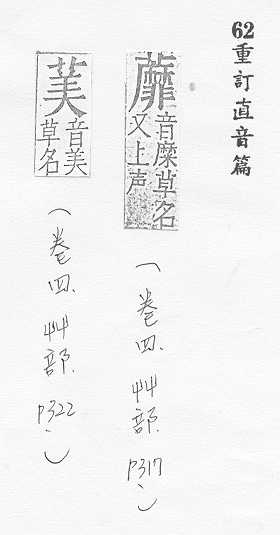 62重訂直音篇
蘼
音糜草名
又上声
(卷四、艸部、p317、)
音美
草名
(卷四、艸部、p322、)